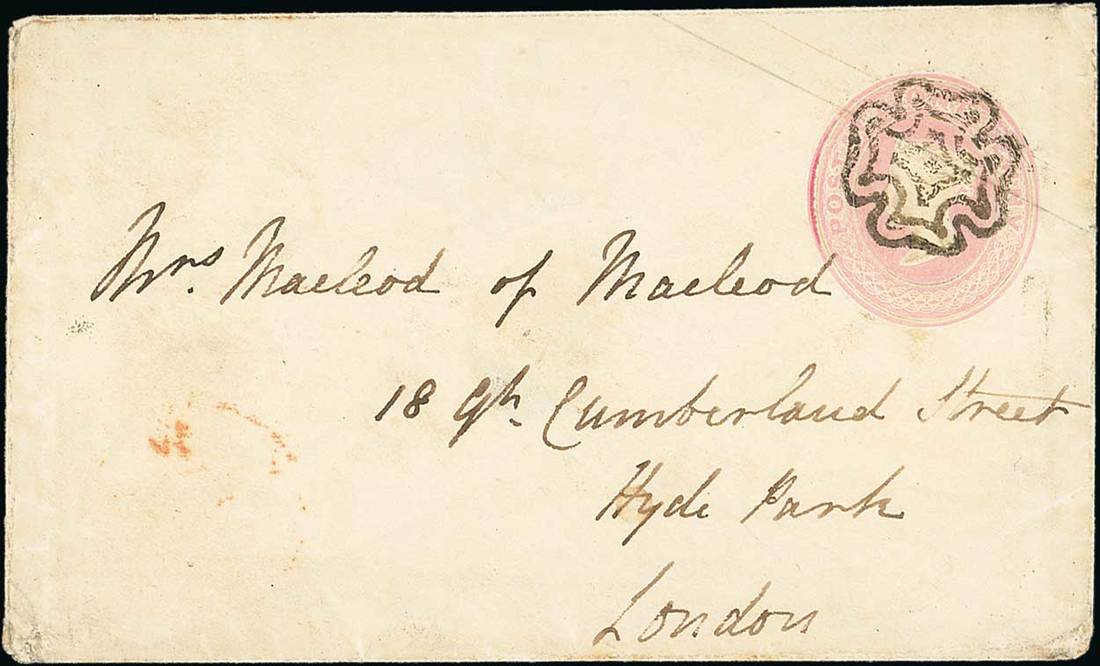 POST
Mrs. Macleod of Macleod
18 Gt. Cumberland Street
Hyde Park
London